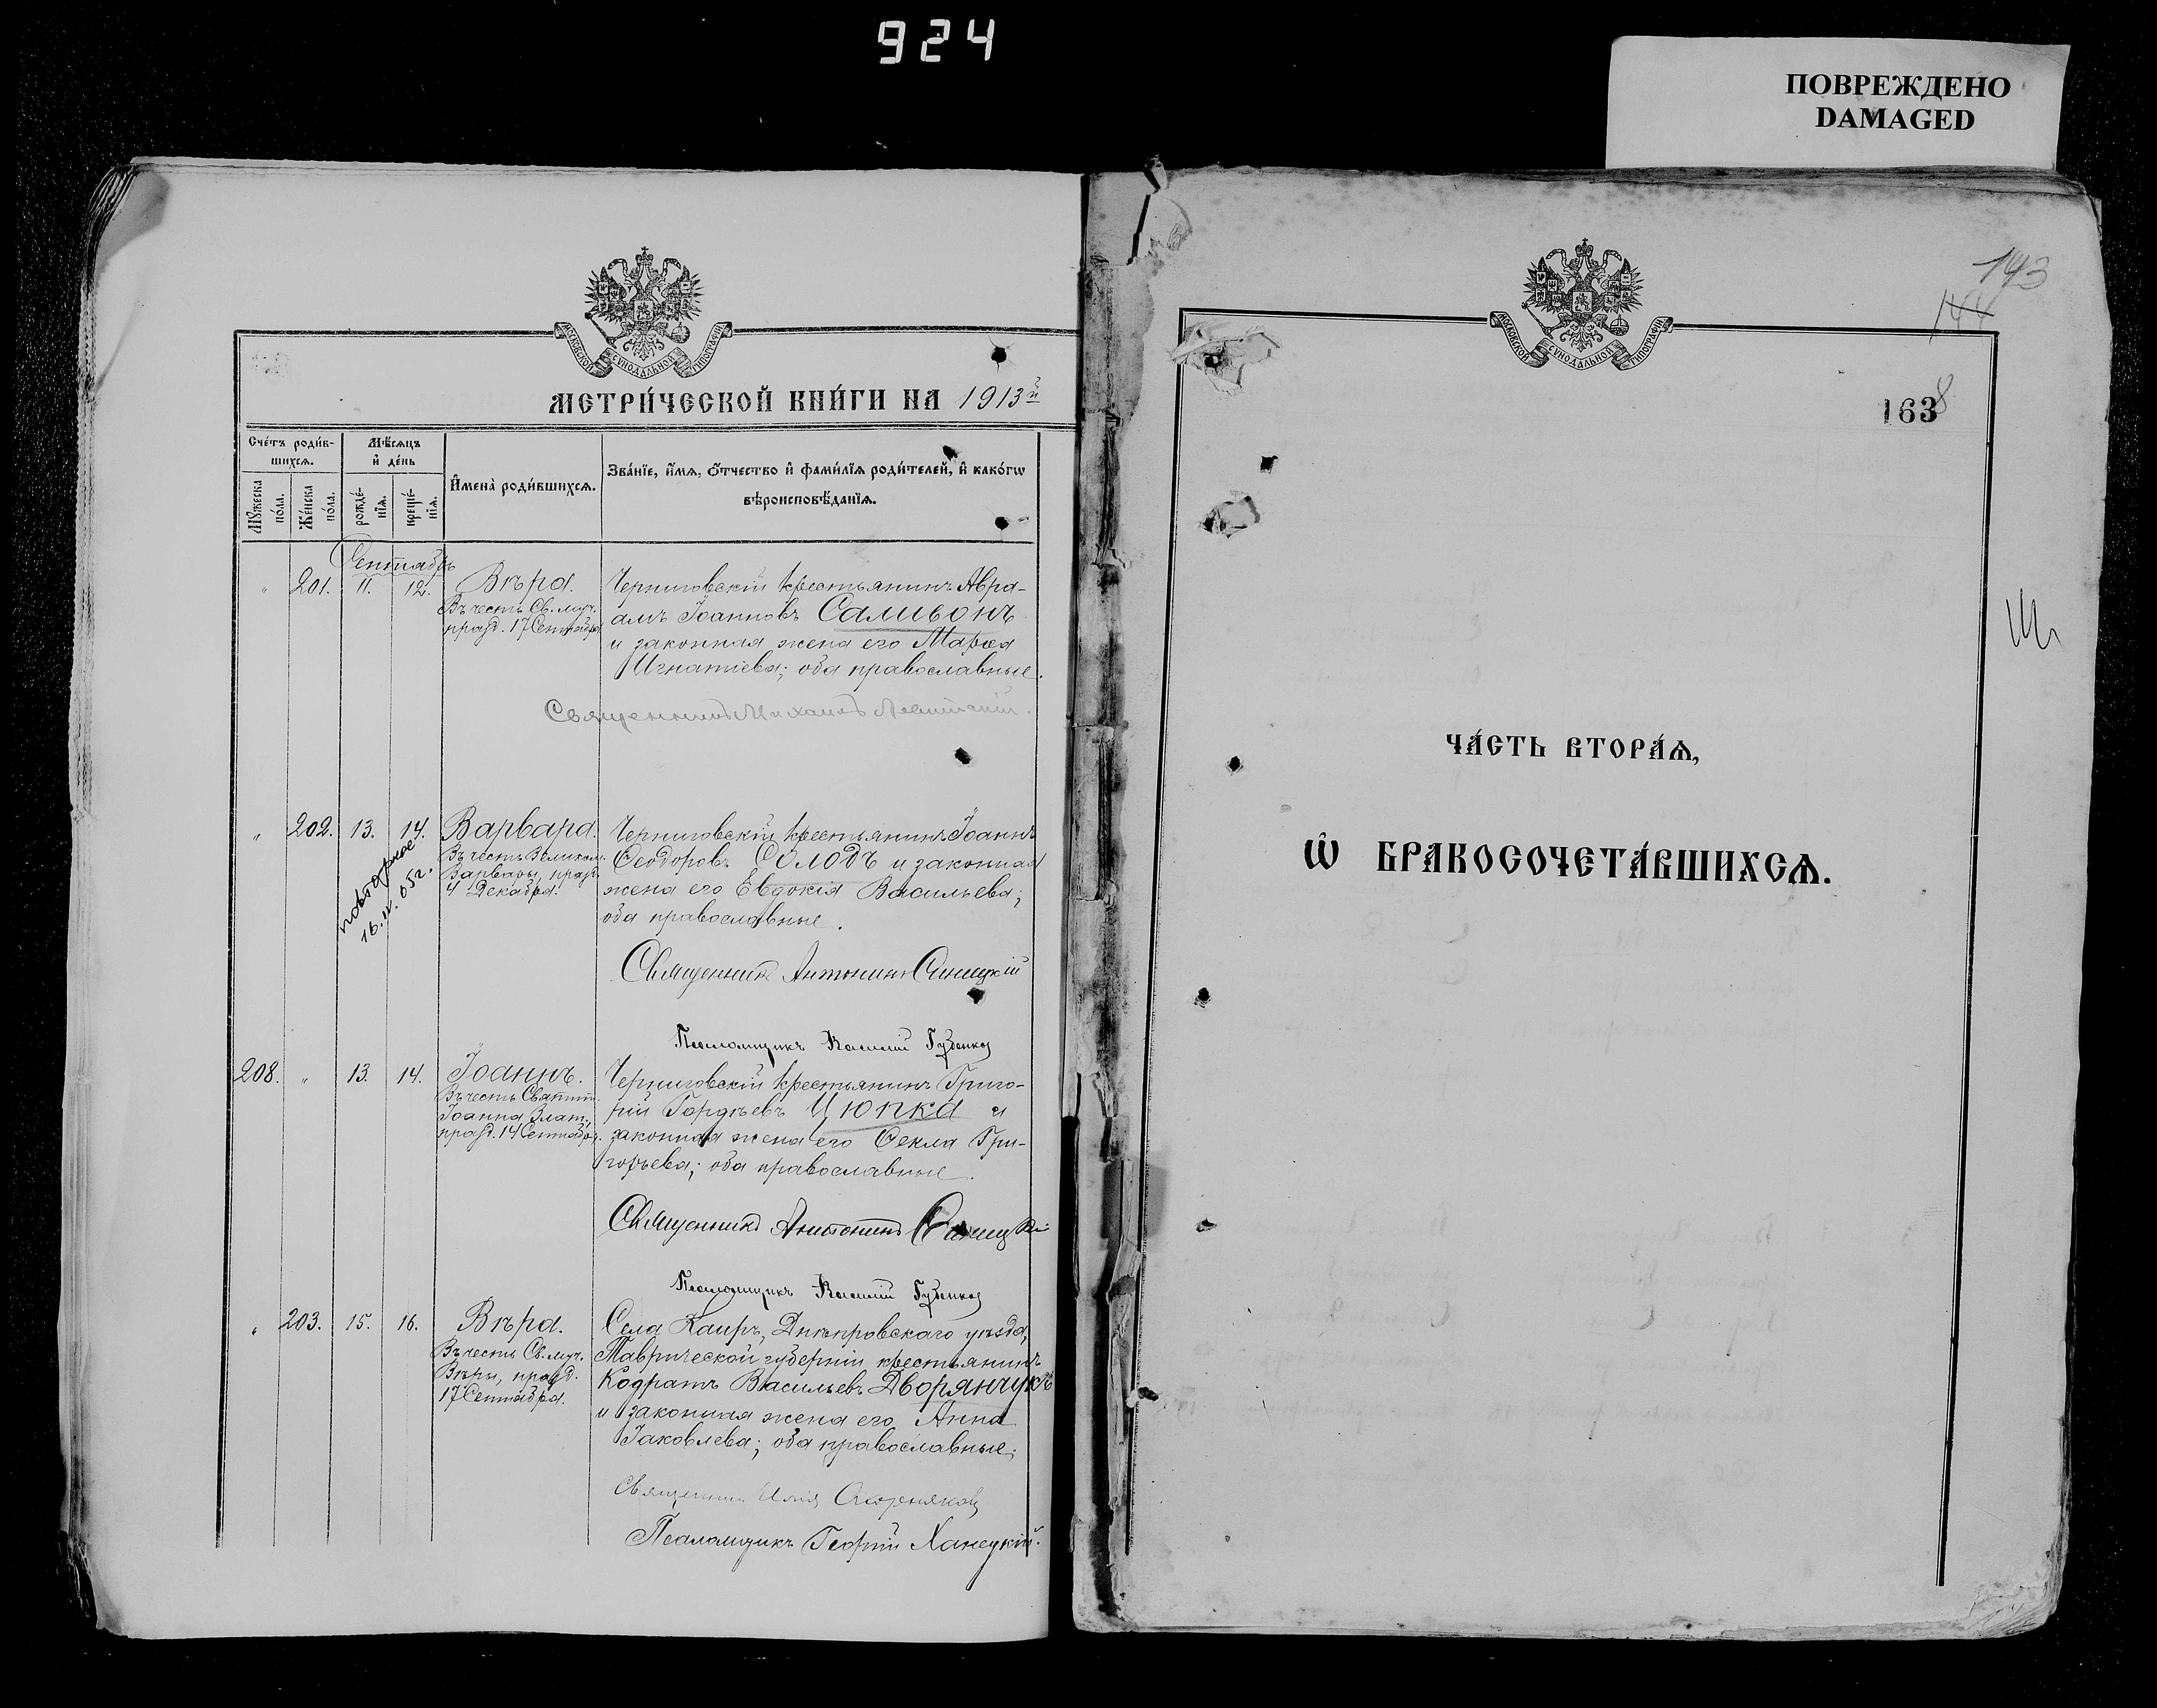 924
ПОВРЕЖДЕНО
DAMAGED
МОСКОВСКОЙ СѴНОДАЛЬНОЙ ТИПОГРАФІИ
МЕТРИ́ЧЕСКОЙ КНИ́ГИ НА 1913й
Сче́тъ роди́в-
шихсѧ.
Мѣ́сѧцъ
и҆ де́нь
И҆мена̀ роди́вшихсѧ.
Зва́нїе, и҆́мѧ, ѻ҆́тчество и҆ фами́лїѧ роди́телей, и҆ како́гѡ
вѣроисповѣ́данїѧ.
Мꙋ́жеска
по́ла.
Же́нска
по́ла.
рожде́-
нїѧ.
креще́-
нїѧ.
Сентябрь
" 201. 11. 12. Вѣра.
Въ честь Св. муч.
празд. 17 Сентября
Черниговскій крестьянинъ Авра-
амъ Іоанновъ Саливонъ
и законная жена его Марѳа
Игнатіева; оба православные.
Священникъ Михаилъ
" 202. 13. 14. Варвара.
Въ честь Великом.
Варвары, празд.
4 Декабря.
повторное
16.II.05г.
Черниговскій крестьянинъ Іоаннъ
Ѳеодоровъ Солодъ и законная
жена его Евдокія Васильева;
оба православные.
Священникъ Антонинъ Синицкій
Псаломщикъ Василій Губенко
208. " 13. 14. Іоаннъ.
Въ честь Святит.
Іоанна Злат.,
празд. 14 Сентября.
Черниговскій крестьянинъ Григо-
рій Гордѣевъ Цюпка и
законная жена его Ѳекла Гри-
горьева; оба православные.
Священникъ Антонинъ Синицкій
Псаломщикъ Василій Губенко
" 203. 15. 16. Вѣра.
Въ честь Св. муч.
Вѣры, празд.
17 Сентября.
Села Каиръ, Днѣпровскаго уѣзда,
Таврической губерніи крестьянинъ
Кодратъ Васильевъ Дворянчукъ
и законная жена его Анна
Іаковлева; оба православные.
Священникъ Илія
Псаломщикъ Георгій Ханецкій.
МОСКОВСКОЙ СѴНОДАЛЬНОЙ ТИПОГРАФІИ
143
144
1638
ЧА́СТЬ ВТОРА́Ѧ,
Ѡ҆ БРАКОСОЧЕТА́ВШИХСѦ.